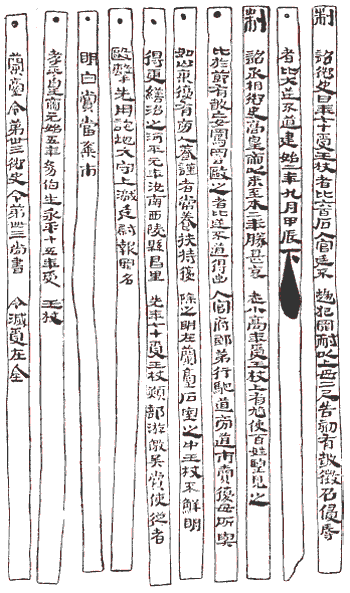 制 詔御史曰年七十受王杖者比六百石入官廷不趨犯罪耐以上毋二尺告劾有敢徵召侵辱
者比大逆不道建始二年九月甲辰下
制 詔丞相御史高皇帝以來至本二年勝甚哀老小高年受王杖上有鳩使百姓望見之
比於節有敢妄罵詈毆之者比逆不道得出入官府郎第行馳道旁道市賣復毋所與
如山東復有旁人養謹者常養扶持復除之明在蘭臺石室之中王杖不鮮明
得更繕治之河平元年汝南西陵縣昌里先年七十受王杖熲部游徼吳賞使從者
毆擊先用詫地太守上讞廷尉報罪名
明白賞當棄市
孝平皇帝元始五年幼伯生永平十五年受王杖
蘭臺令第卅三御史令第卌三尚書令滅受在金